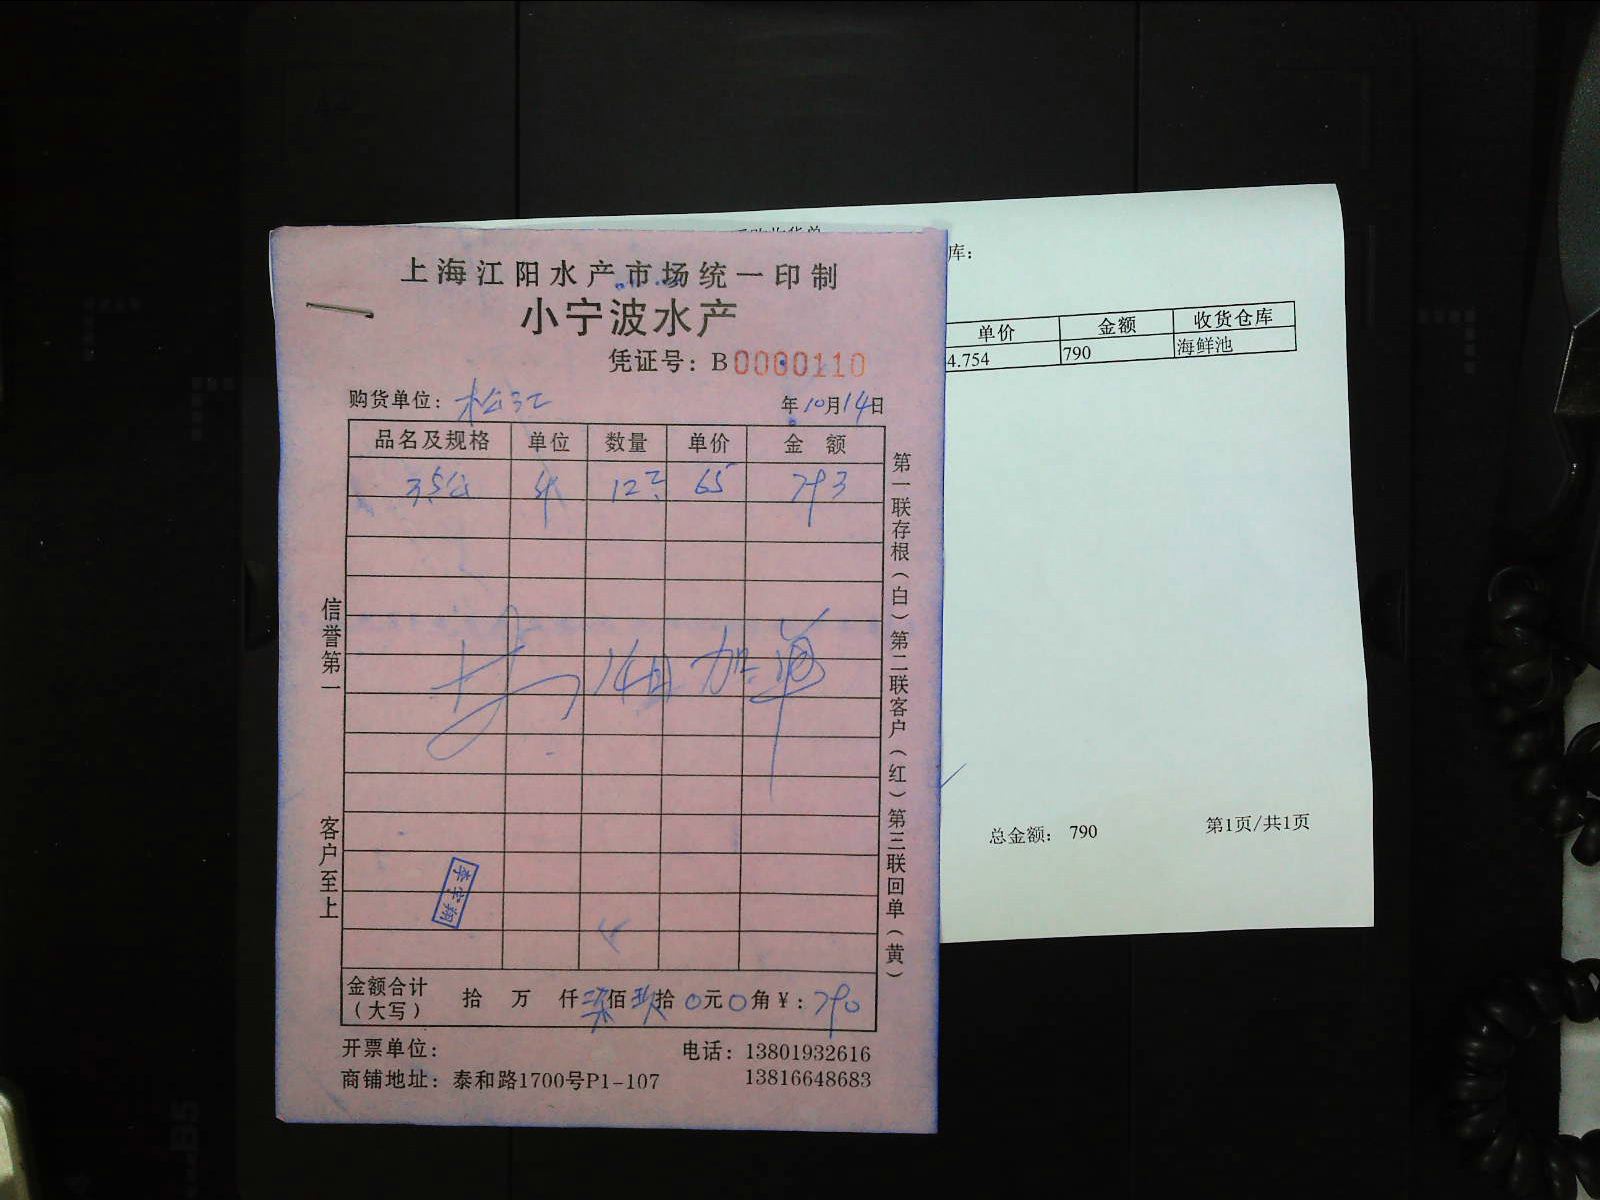 上海江阳水产市场统一印制
小宁波水产
凭证号：B0000110
购货单位：松江 年10月14日
品名及规格 单位 数量 单价 金 额
12.2 65 793
14日加单
信誉第一
客户至上
第一联存根（白）第二联客户（红）第三联回单（黄）
李宇翔
金额合计（大写） 拾 万 仟柒佰玖拾0元0角¥：790
开票单位： 电话：13801932616
商铺地址：泰和路1700号P1-107 13816648683
库：
单价 金额 收货仓库
4.754 790 海鲜池
总金额： 790 第1页/共1页